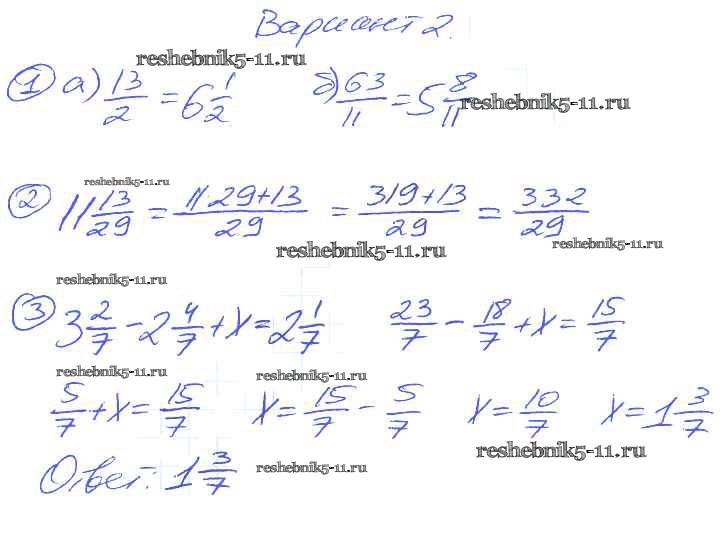 Вариант 2.
reshebnik5-11.ru
1 а) 13/2 = 6 1/2 б) 63/11 = 5 8/11
reshebnik5-11.ru
reshebnik5-11.ru
2 11 13/29 = 11·29+13/29 = 319+13/29 = 332/29
reshebnik5-11.ru
reshebnik5-11.ru
reshebnik5-11.ru
3 3 2/7 - 2 4/7 + x = 2 1/7 23/7 - 18/7 + x = 15/7
reshebnik5-11.ru
reshebnik5-11.ru
5/7 + x = 15/7 x = 15/7 - 5/7 x = 10/7 x = 1 3/7
reshebnik5-11.ru
Ответ: 1 3/7
reshebnik5-11.ru